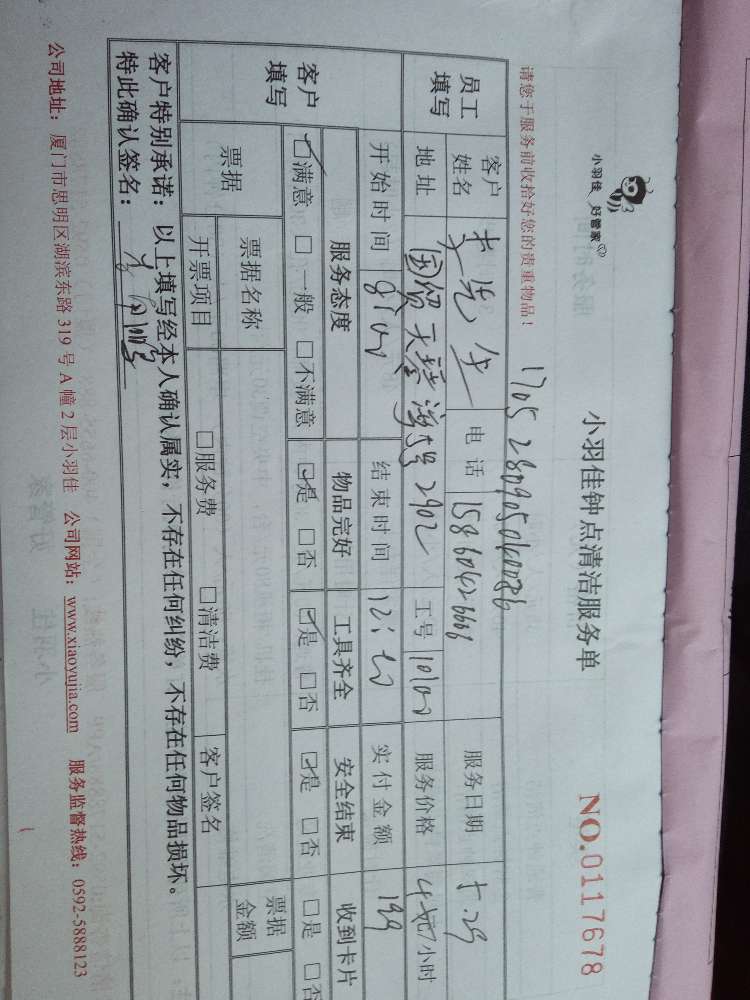 小羽佳 好管家
小羽佳钟点清洁服务单
NO.0117678
请您于服务前收拾好您的贵重物品!
员工填写
客户姓名 先生 电话 15860426606 服务日期 5.29
地址 国贸天琴湾 2902 工号 服务价格 /小时
客户填写
开始时间 结束时间 实付金额 199
服务态度 物品完好 工具齐全 安全结束 收到卡片
☑满意 □一般 □不满意 ☑是 □否 ☑是 □否 ☑是 □否 □是 □否
票据 票据名称 票据金额
开票项目 □服务费 □清洁费 客户签名
客户特别承诺:以上填写经本人确认属实,不存在任何纠纷,不存在任何物品损坏。
特此确认签名:
公司地址:厦门市思明区湖滨东路319号A幢2层小羽佳 公司网站:www.xiaoyujia.com 服务监督热线:0592-5888123